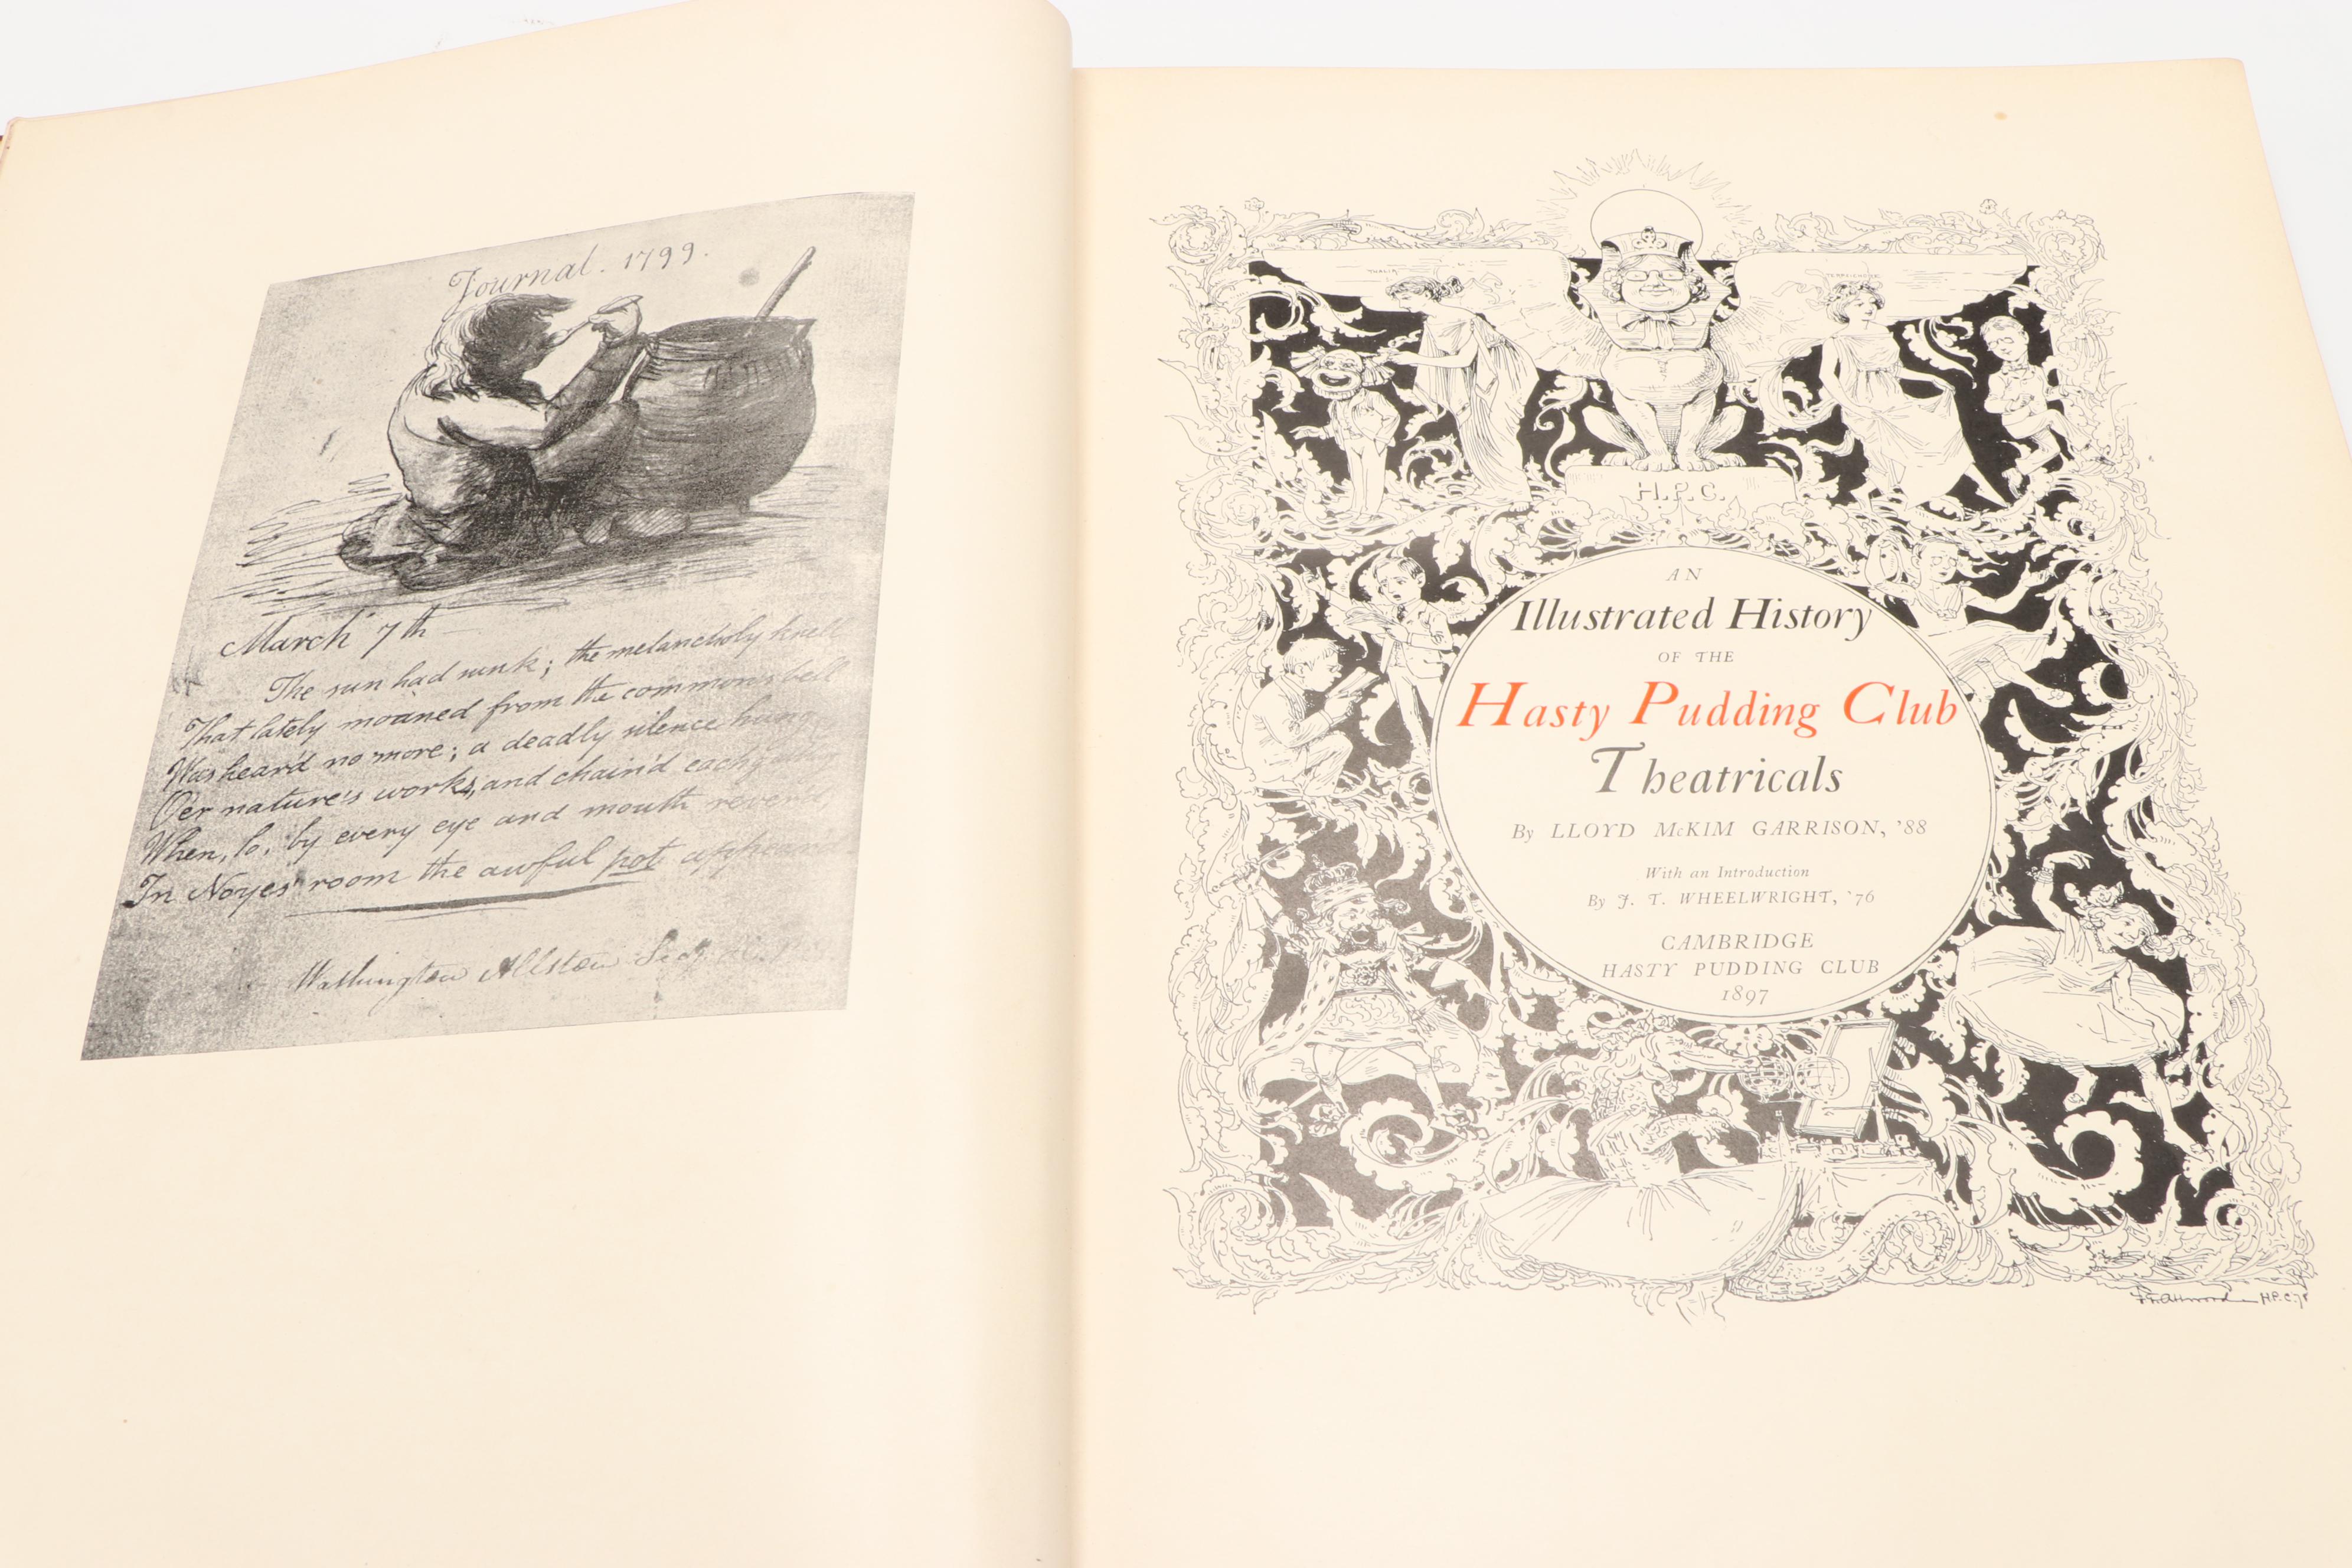 Journal. 1799.
March 7th
The sun had sunk; the melancholy knell
That lately moaned from the commons bell
Was heard no more; a deadly silence hung
O'er nature's works, and chain'd each
When, lo, by every eye and mouth rever'd,
In Noyes' room the awful pot appear'd
Washington Allston Sec
THALIA
TERPSICHORE
H.P.C.
AN
Illustrated History
OF THE
Hasty Pudding Club
Theatricals
By LLOYD McKIM GARRISON, '88
With an Introduction
By J. T. WHEELWRIGHT, '76
CAMBRIDGE
HASTY PUDDING CLUB
1897
F.G. Attwood H.P.C. 78